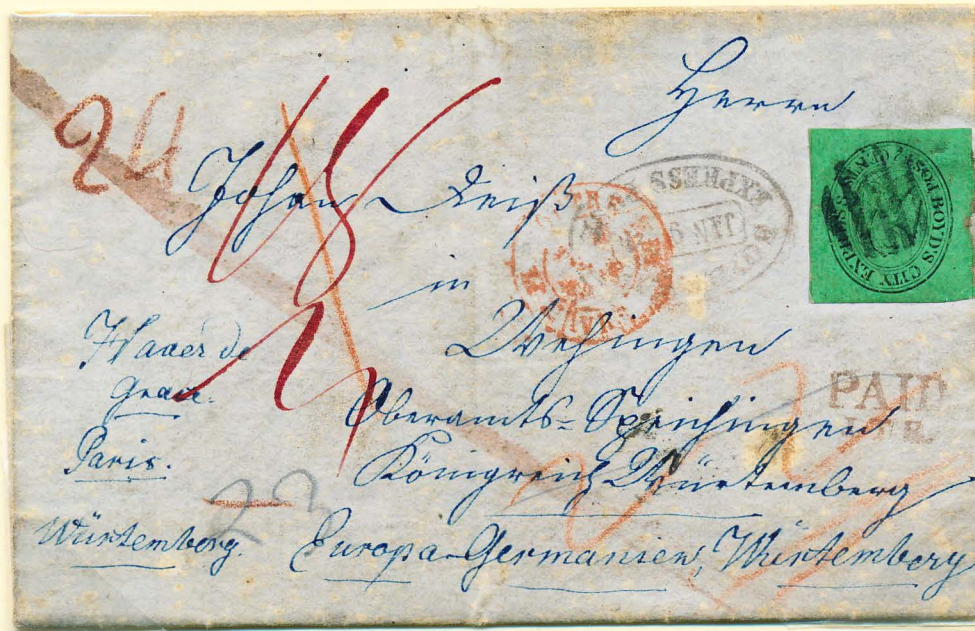 Herrn
24
Johan Reiß
in
Wehingen
Oberamts-Speichingen
Königreich Würtemberg
Europa-Germanien, Würtemberg
Haaer de
Graa.
Paris.
Würtemberg.
22
EXPRESS
JAN
BOYD'S CITY EXPRESS POST
PAID